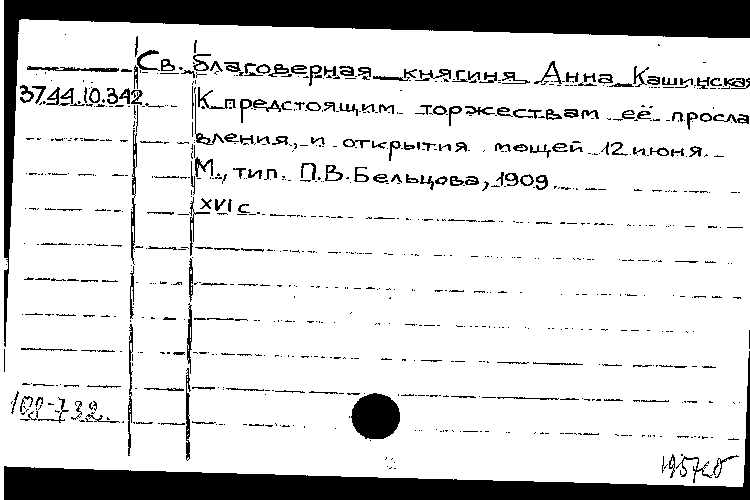 Св. Благоверная княгиня Анна Кашинская
37.44.10.342. К предстоящим торжествам её просла
вления, и открытия мощей 12 июня.
М., тип. П.В. Бельцова, 1909
XVI с.
108-732.